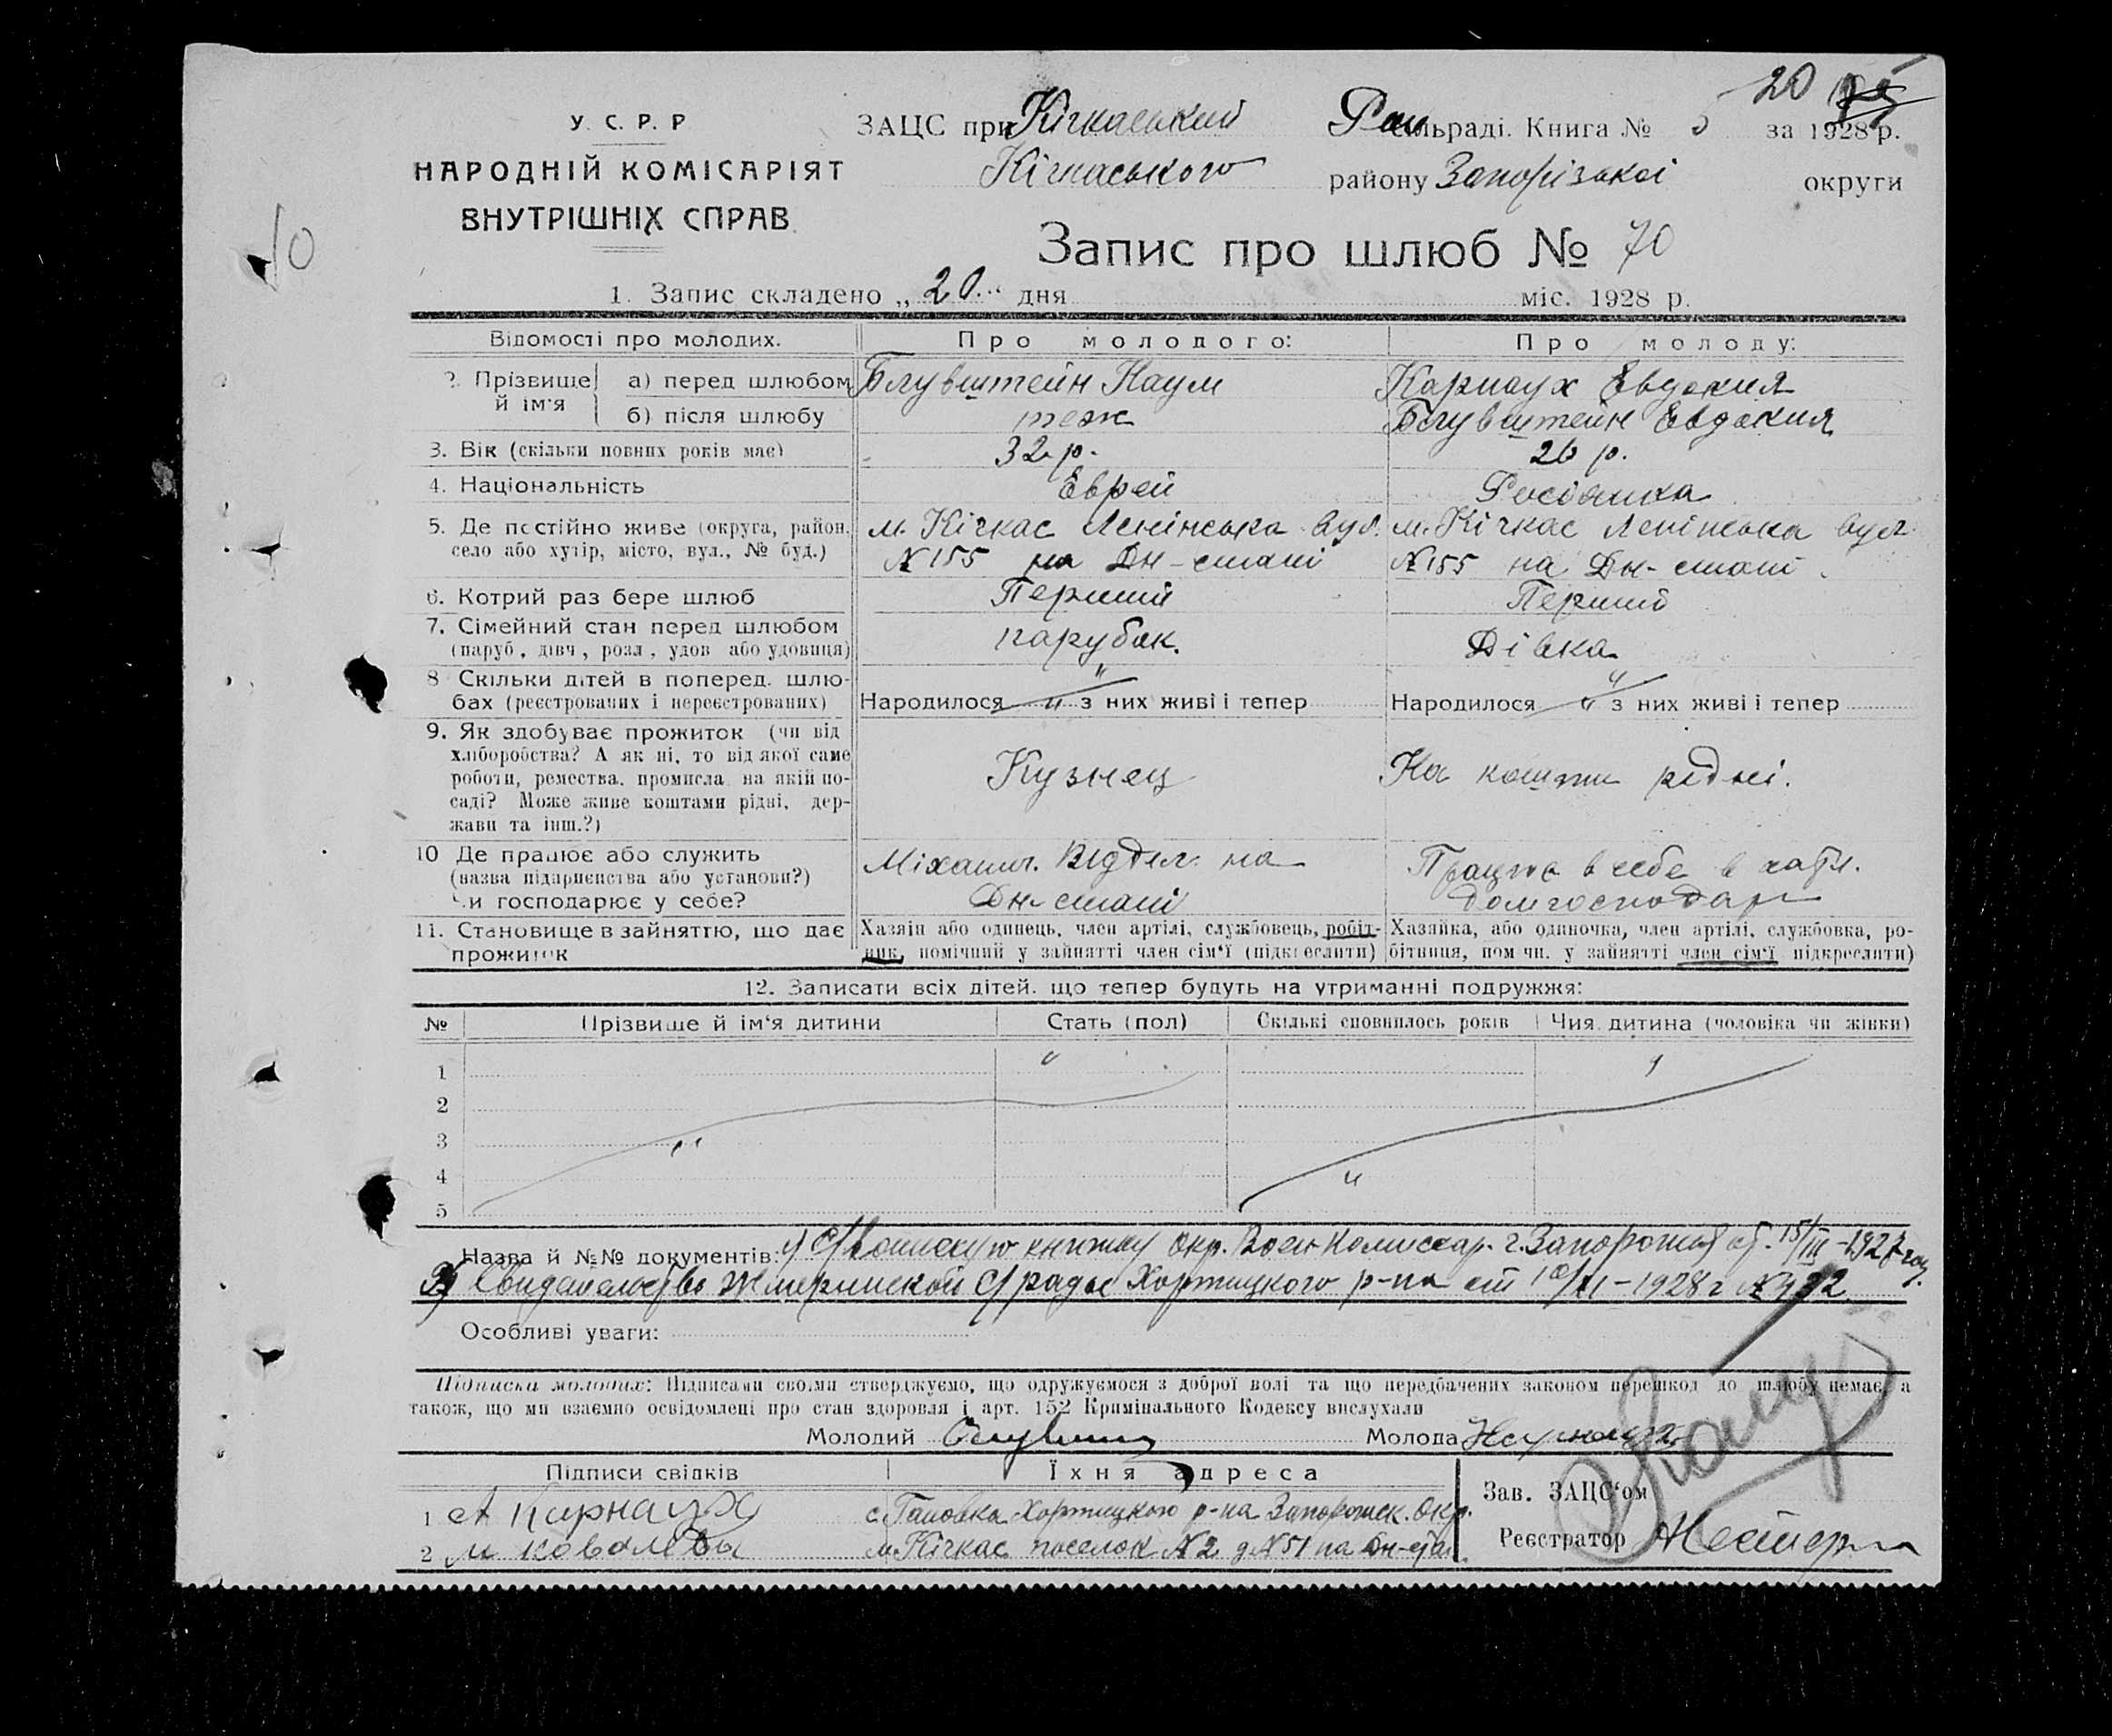 20
У. С. Р. Р
НАРОДНІЙ КОМІСАРІЯТ
ВНУТРІШНІХ СПРАВ.
10
ЗАЦС при Кічкаський Рай сільраді. Книга № 5 за 1928 р.
Кічкаського району Запорізької округи
Запис про шлюб № 70
1. Запис складено „20“ дня міс. 1928 р.
Відомості про молодих. Про молодого: Про молоду:
2. Прізвище й ім'я а) перед шлюбом Блувштейн Наум Карнаух Евдокия
б) після шлюбу теж Блувштейн Евдокия
3. Вік (скільки повних років має) 32 р. 26 р.
4. Національність Еврей Росіянка
5. Де постійно живе (округа, район, м. Кічкас Ленінська вул. м. Кічкас Ленінська вул.
село або хутір, місто, вул., № буд.) №155 на Дн-стані №155 на Дн-стані
6. Котрий раз бере шлюб Перший Перший
7. Сімейний стан перед шлюбом парубок. Дівка
(паруб., дівч., розл., удов. або удовиця)
8 Скільки дітей в поперед. шлю-
бах (реєстрованих і нереєстрованих) Народилося " з них живі і тепер Народилося " з них живі і тепер
9. Як здобуває прожиток (чи від
хліборобства? А як ні, то від якої саме
роботи, ремества, промисла, на якій по- Кузнец На кошти рідні.
саді? Може живе коштами рідні, дер-
жави та інш.?)
10 Де працює або служить Міхан. Відділ. на Працює в себе в хаті.
(назва підприємства або установи?)
Чи господарює у себе? Дн-стані Домгосподар
11. Становище в зайняттю, що дає Хазяїн або одинець, член артілі, службовець, робіт- Хазяйка, або одиночка, член артілі, службовка, ро-
прожиток ник, помічний у зайнятті член сім'ї (підкреслити) бітниця, помічн. у зайнятті член сім'ї підкреслити)
12. Записати всіх дітей, що тепер будуть на утриманні подружжя:
№ Прізвище й ім'я дитини Стать (пол) Скількі сповнилось років Чия дитина (чоловіка чи жінки)
1
2
3
4
5
Назва й №№ документів: книжку Окр. Воен Комиссар. г. Запорожья от 15/III-1927 год.
2) Свидетельство Сірады Хортицкого р-на от 10/XI-1928 г №
Особливі уваги:
Підписка молодих: Підписами своїми стверджуємо, що одружуємося з доброї волі та що передбачених законом перешкод до шлюбу немає, а
також, що ми взаємно освідомлені про стан здоровля і арт. 152 Кримінального Кодексу вислухали
Молодий Молода
Підписи свідків Їхня адреса
1 А Карнаух с. Хортицкого р-на Запорожск. Окр. Зав. ЗАЦС'ом
2 м. Кічкас поселок №2 д №51 на Дн-ста. Реєстратор